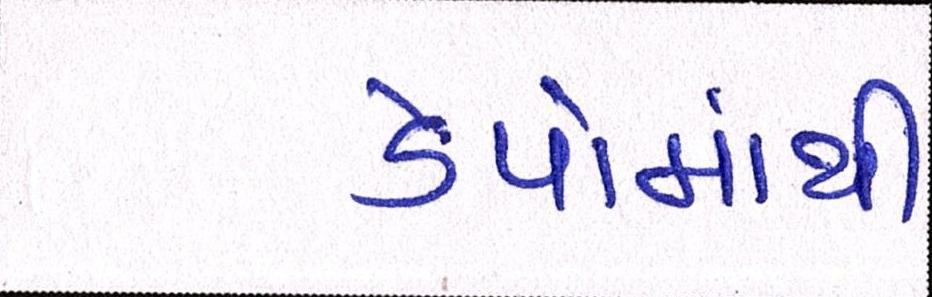 ડેપોમાંથી